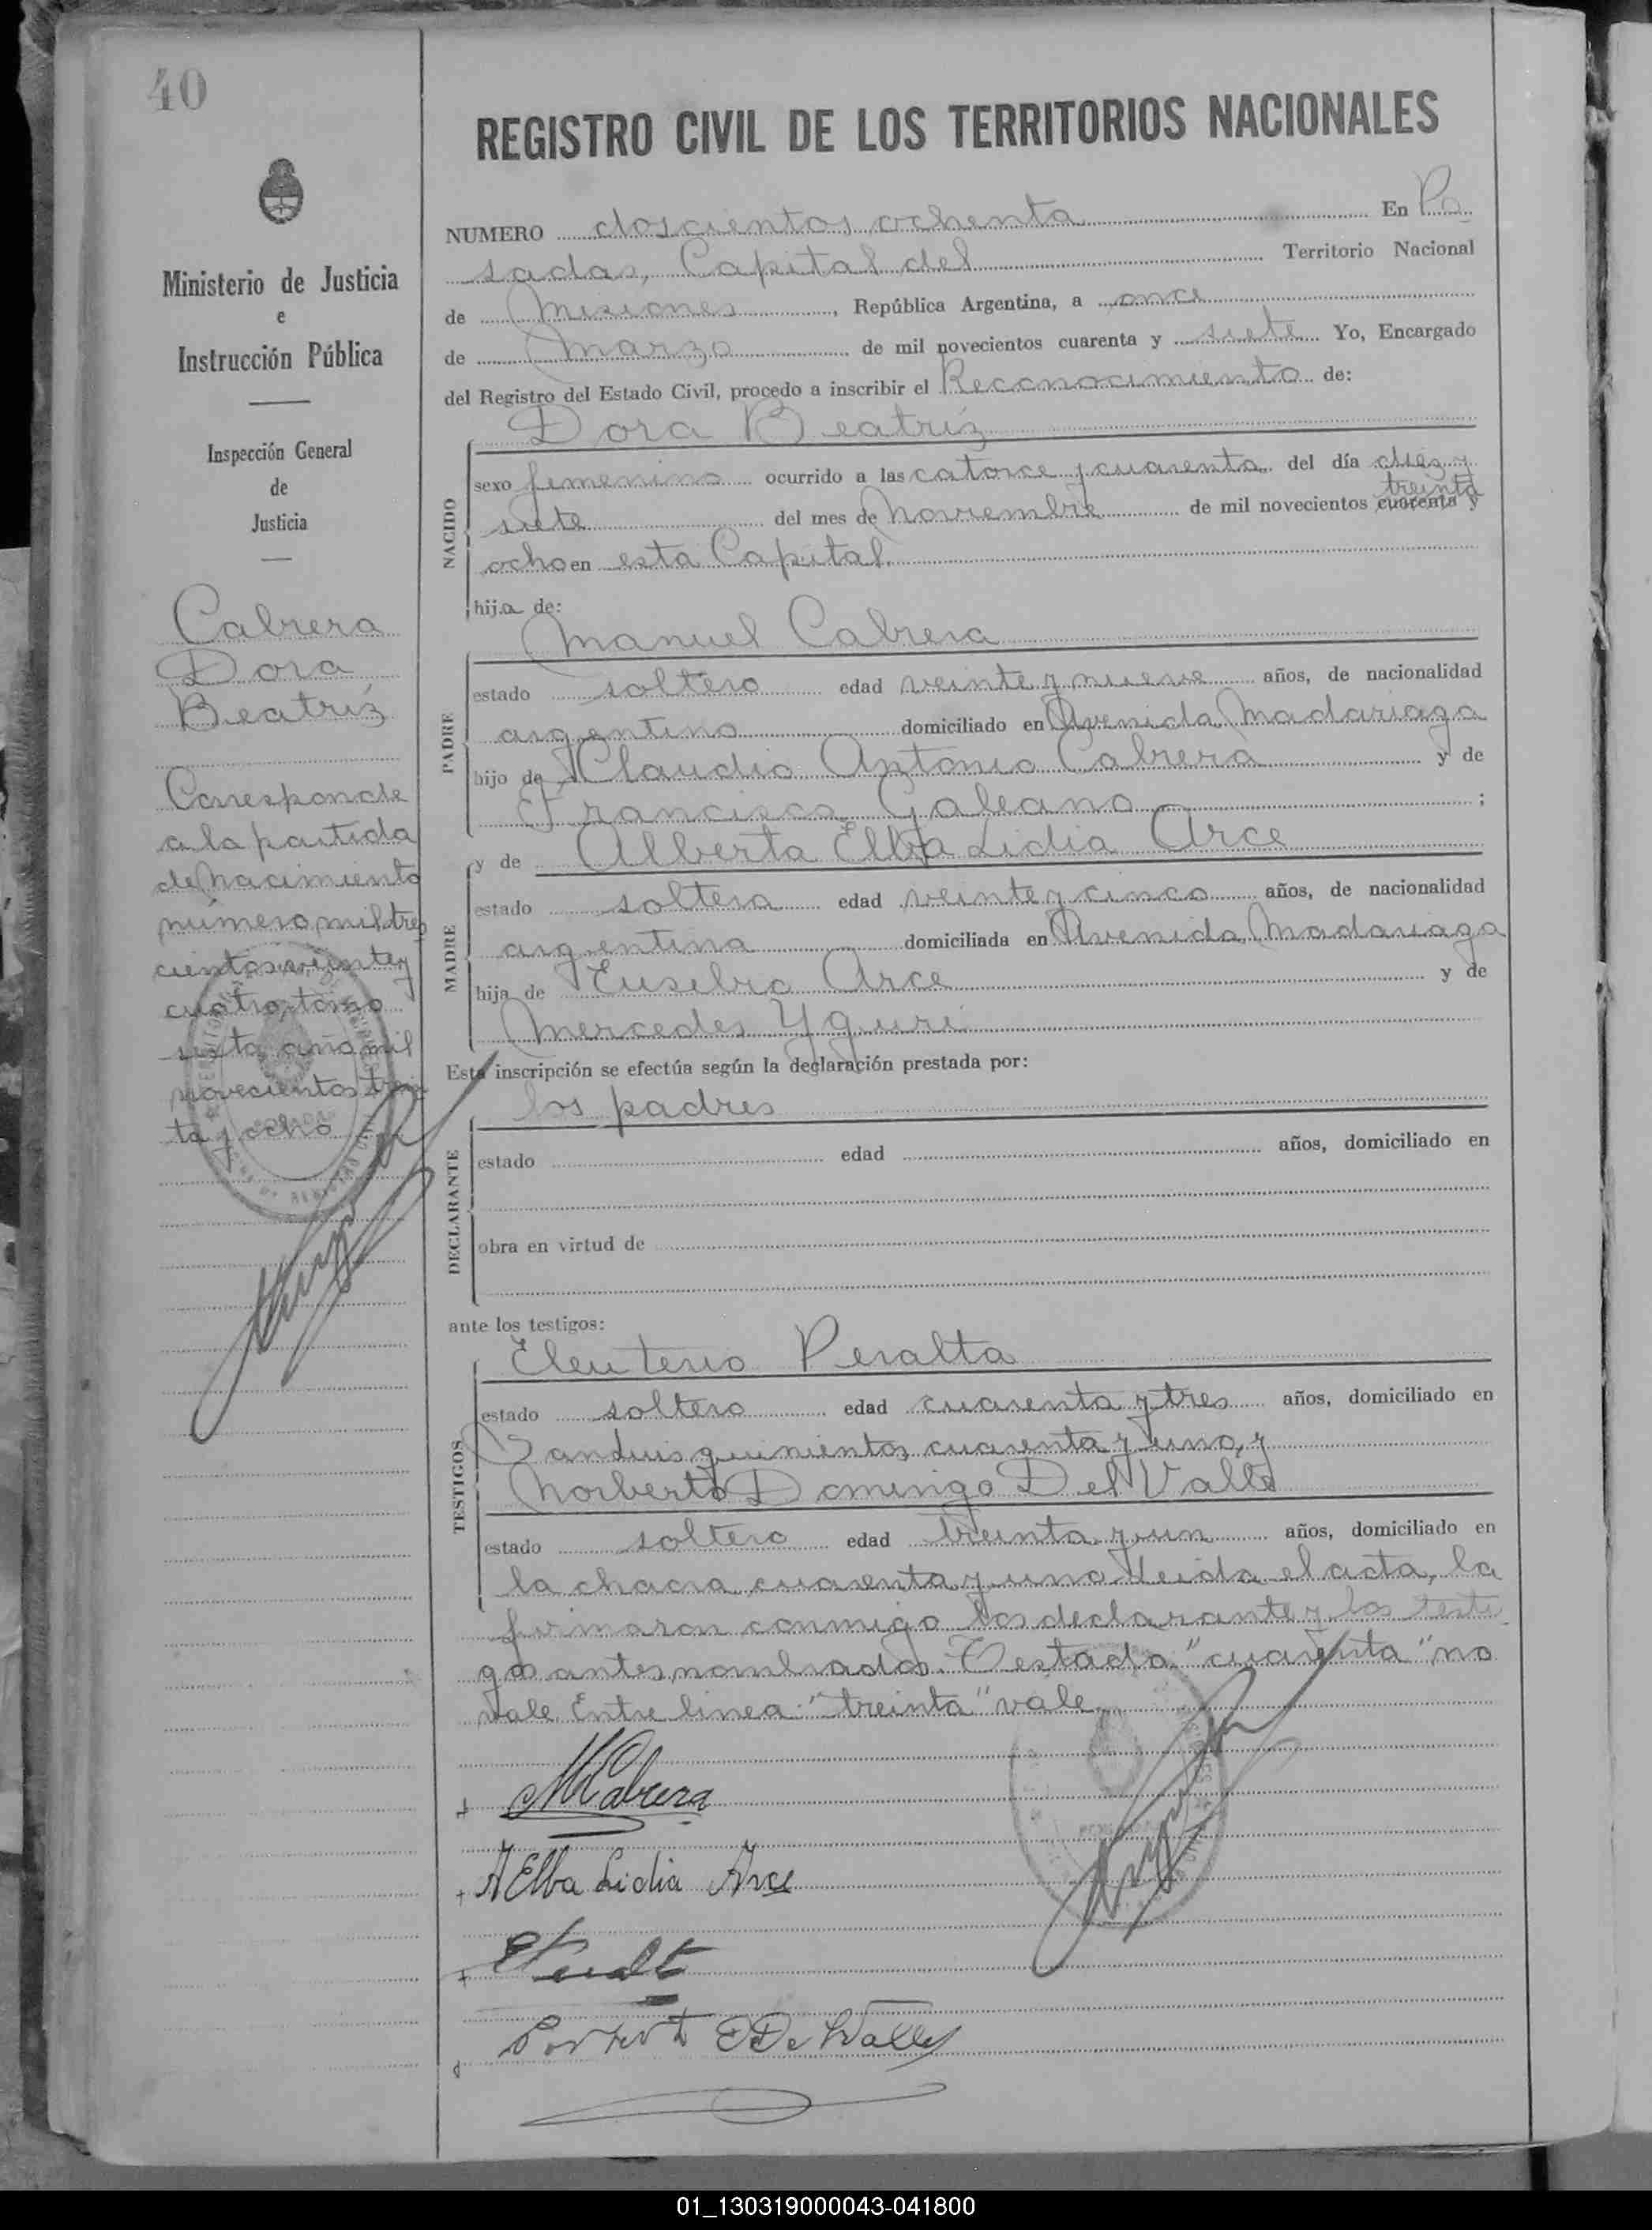 40
Ministerio de Justicia
e
Instrucción Pública
Inspección General
de
Justicia
Cabrera
Dora
Beatríz
Corresponde
a la partida
de Nacimiento
número mil tres
cientos veinte y
cuatro, tomo
sexto, año mil
novecientos trein
ta y ocho
REGISTRO CIVIL DE LOS TERRITORIOS NACIONALES
NUMERO doscientos ochenta En Po
sadas, Capital del Territorio Nacional
de Misiones, República Argentina, a once
de Marzo de mil novecientos cuarenta y siete Yo, Encargado
del Registro del Estado Civil, procedo a inscribir el Reconocimiento de:
Dora Beatríz
NACIDO
sexo femenino ocurrido a las catorce y cuarenta del día diez y
treinta
siete del mes de Noviembre de mil novecientos cuarenta y
ocho en esta Capital.
hija de:
Manuel Cabrera
PADRE
estado soltero edad veinte y nueve años, de nacionalidad
argentino domiciliado en Avenida Madariaga
hijo de Claudio Antonio Cabrera y de
Francisca Galeano ;
y de Alberta Elba Lidia Arce
MADRE
estado soltera edad veinte y cinco años, de nacionalidad
argentina domiciliada en Avenida Madariaga
hija de Eusebio Arce y de
Mercedes Yguri
Esta inscripción se efectúa según la declaración prestada por:
los padres
DECLARANTE
estado edad años, domiciliado en
obra en virtud de
ante los testigos:
Eleuterio Peralta
TESTIGOS
estado soltero edad cuarenta y tres años, domiciliado en
quinientos cuarenta y uno, y
Norberto Domingo Del Valle
estado soltero edad treinta y un años, domiciliado en
la chacra cuarenta y uno. Leida el acta, la
firmaron conmigo los declarante y los testi
gos antes nombrados. Testado "cuarenta" no
vale. Entre linea: "treinta" vale.
M Cabrera
A Elba Lidia Arce
01_130319000043-041800